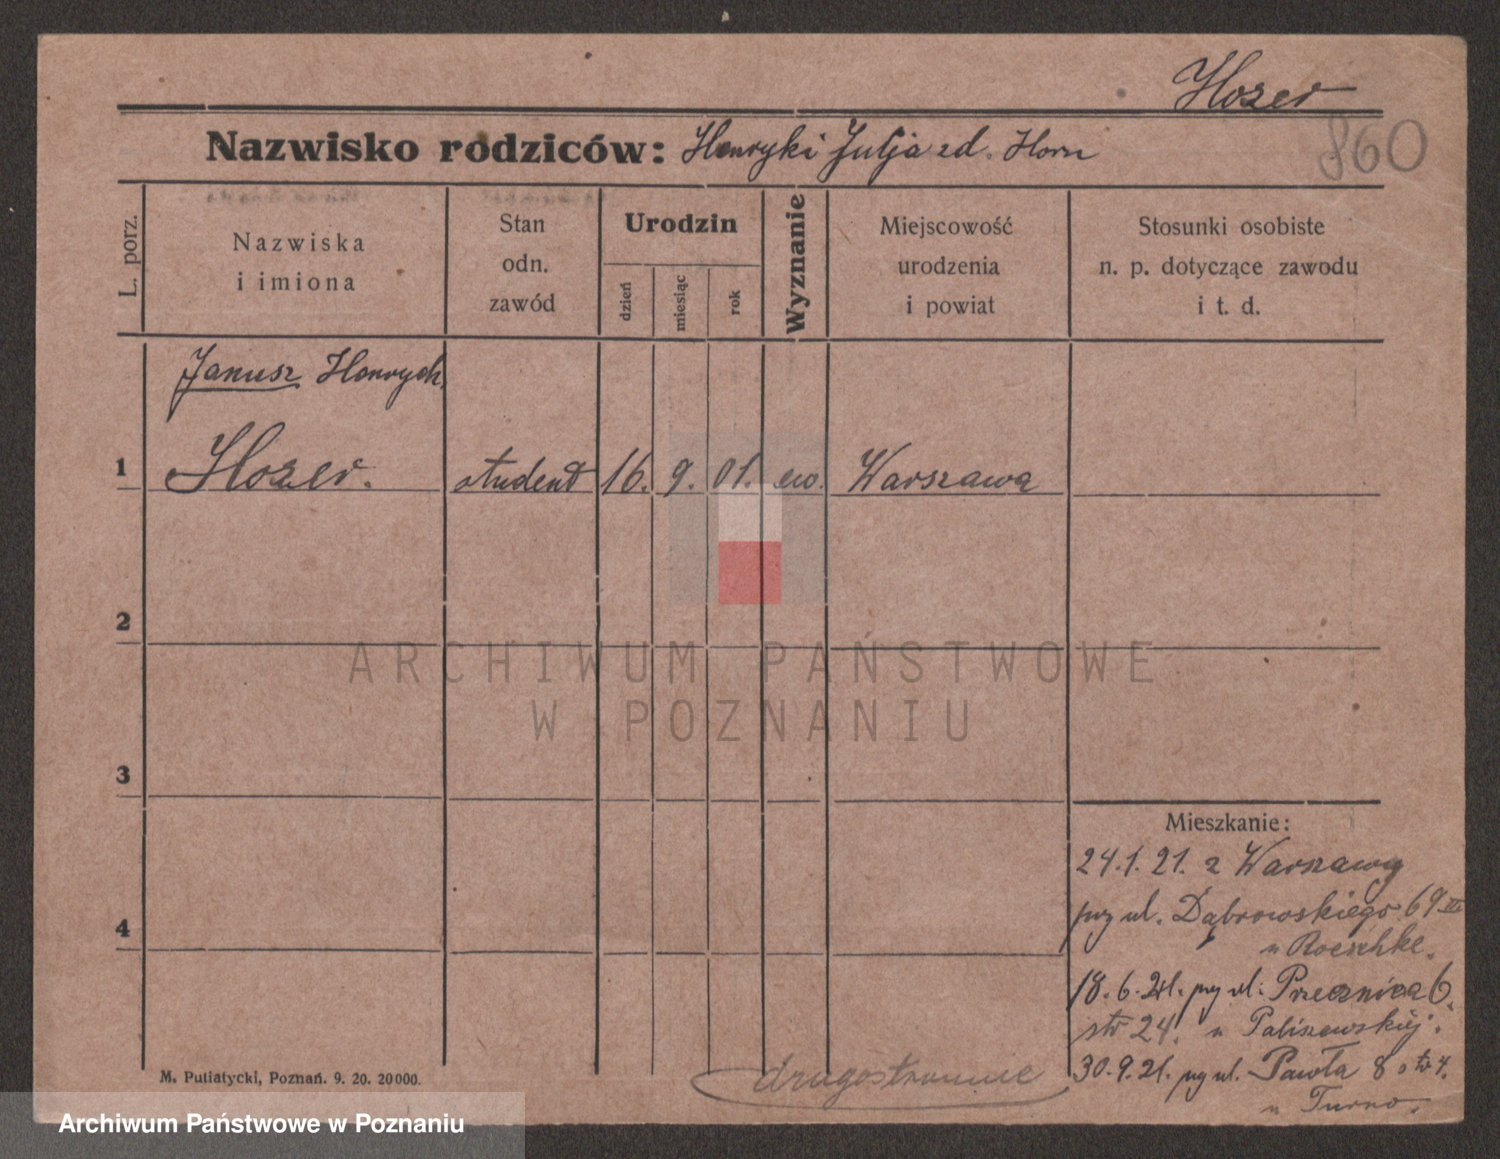 Hozer
Nazwisko rodziców: Henryki Julja zd. Horn
860
L. porz.
Nazwiska
i imiona
Stan
odn.
zawód
Urodzin
dzień
miesiąc
rok
Wyznanie
Miejscowość
urodzenia
i powiat
Stosunki osobiste
n. p. dotyczące zawodu
i t. d.
Janusz Henrych
1 Hozer. student 16. 9. 01. ew. Warszawa
2
ARCHIWUM PAŃSTWOWE
W POZNANIU
3
Mieszkanie:
24.1.21. z Warszawy
przy ul. Dąbrowskiego 69 III
u Roeschke.
4
18.6.21. przy ul. Przecznica 6.
24. u Paliszewskiej.
30.9.21. przy ul. Pawła 8
u Turno.
drugostronnie
M. Putiatycki, Poznań. 9. 20. 20000.
Archiwum Państwowe w Poznaniu